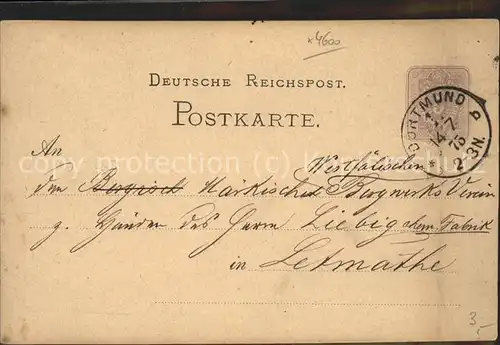 k4600
DEUTSCHE REICHSPOST.
POSTKARTE.
DORTMUND
14/7
75
2-3N.
An
Westfälischen
den Bergisch Märkischen Bergwerks Verein
z. Händen des Herrn Liebig chem. Fabrik
in Letmathe
3,-